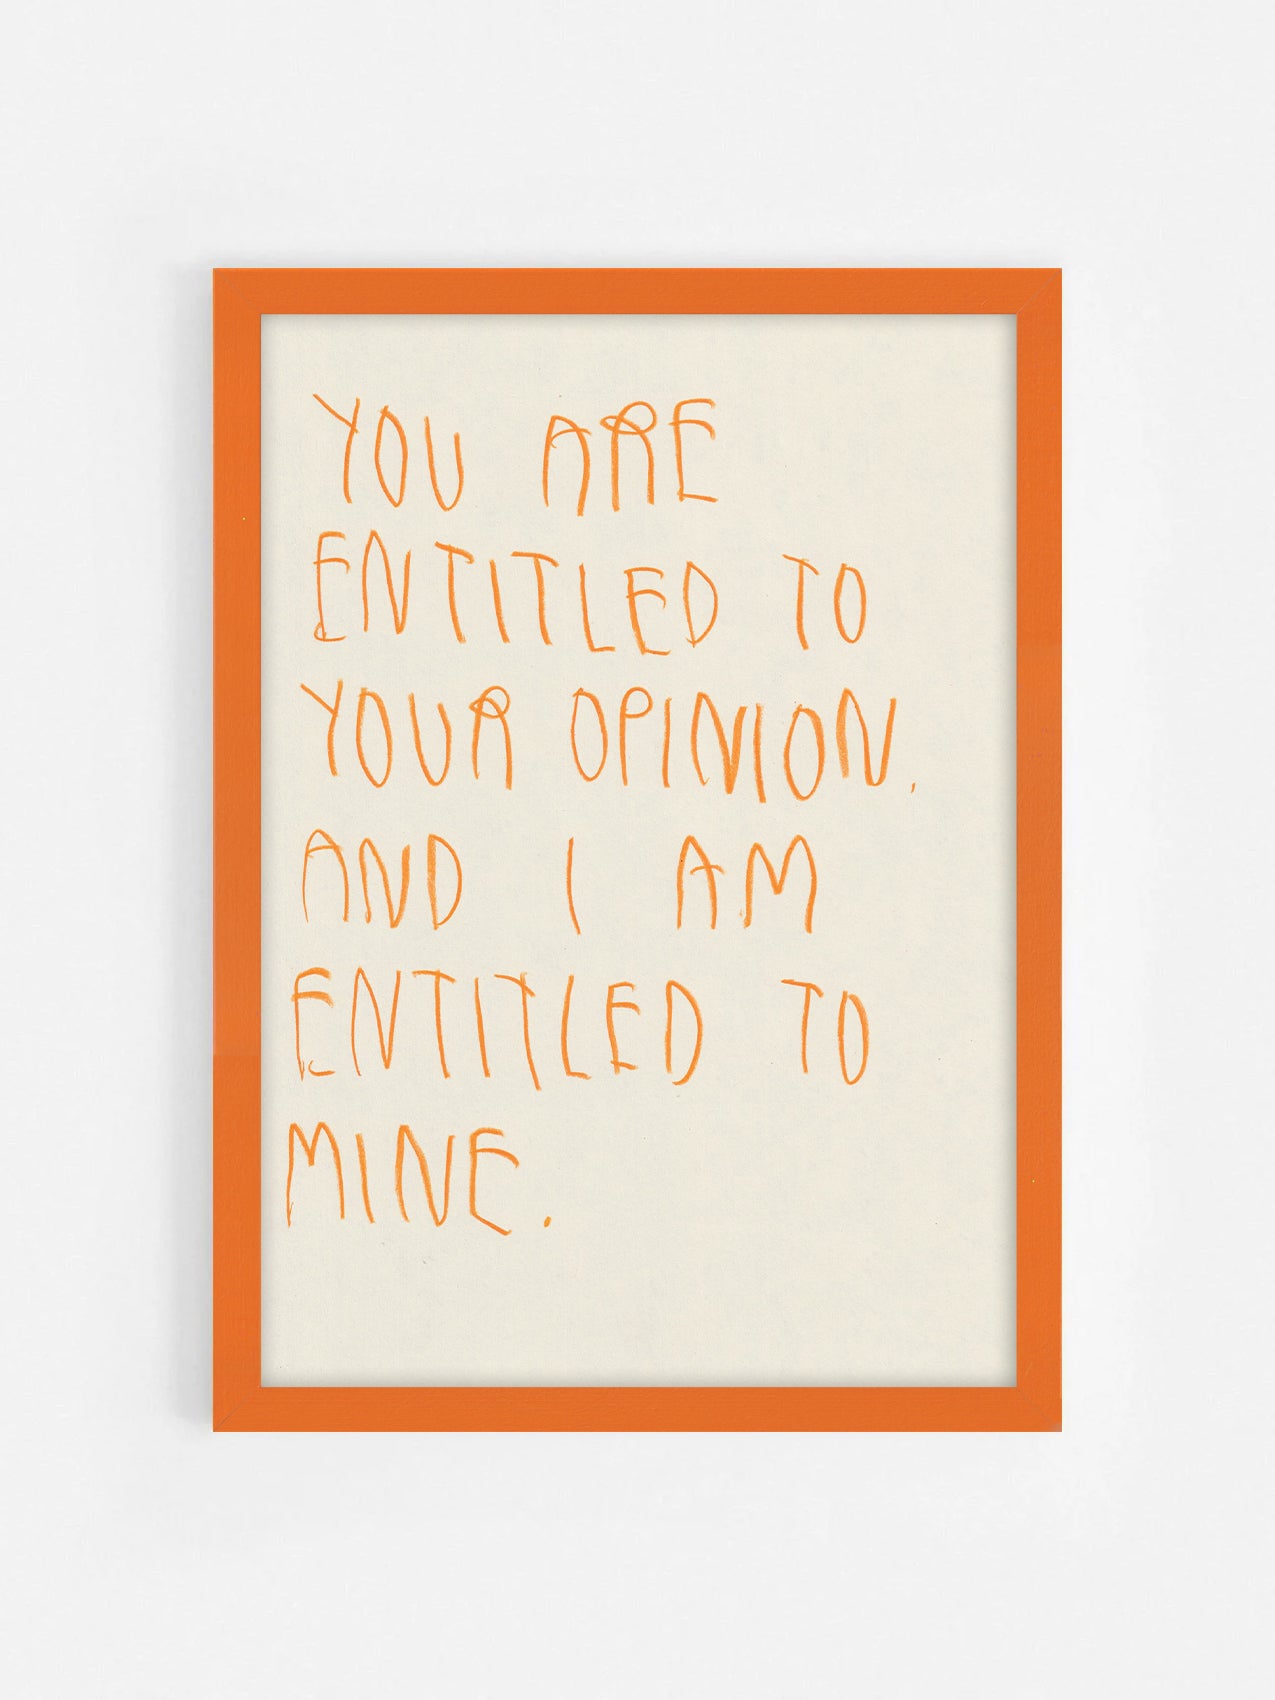 YOU ARE
ENTITLED TO
YOUR OPINION,
AND I AM
ENTITLED TO
MINE.